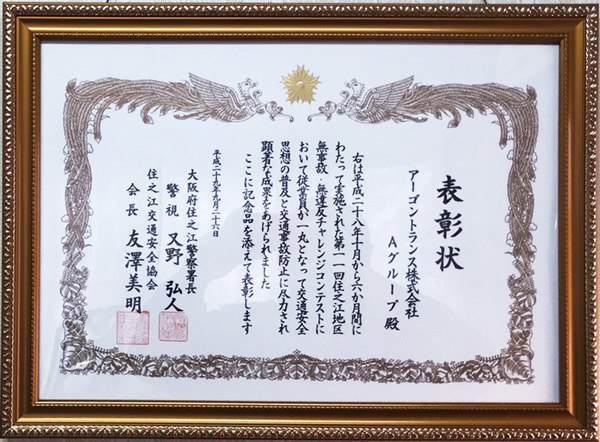 表彰状
アーゴントランス株式会社
Aグループ殿
右は平成二十八年十月から六か月間に
わたって実施された第一一回住之江地区
無事故・無違反チャレンジコンテストに
おいて従業員が一丸となって交通安全
思想の普及と交通事故防止に尽力され
顕著な成果をあげられました
ここに記念品を添えて表彰します
平成二十九年九月二十六日
大阪府住之江警察署長
警視 又野弘人
住之江交通安全協会
会長 友澤美明